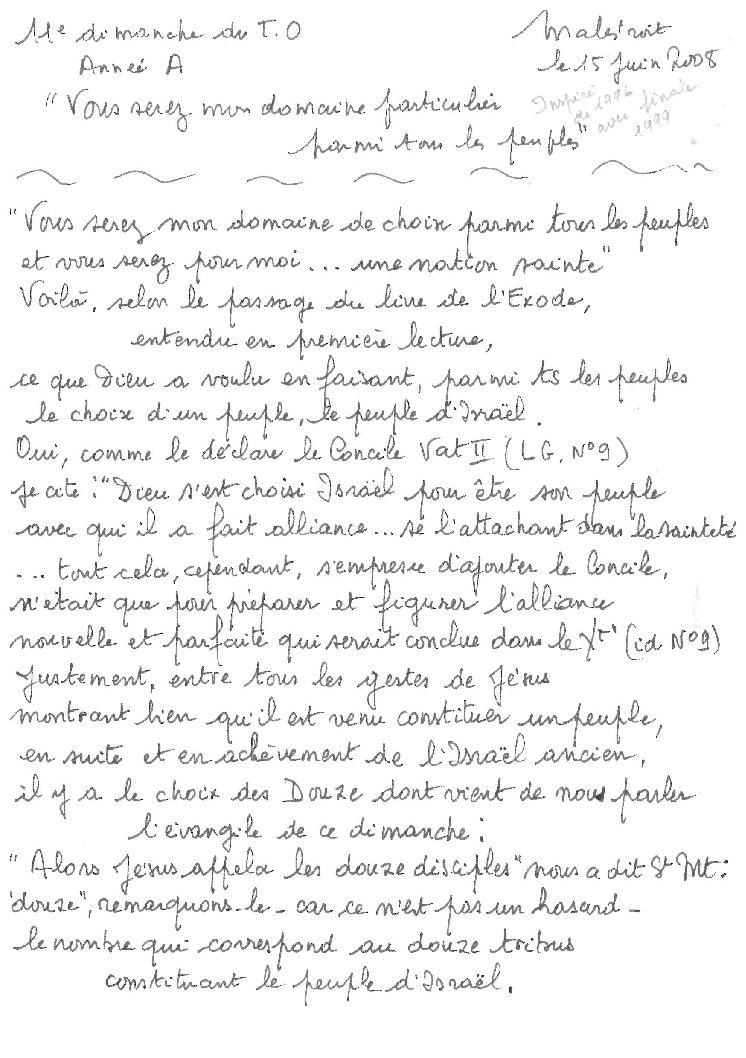 11e dimanche du T.O
Malestroit
Année A
le 15 Juin 2008
"Vous serez mon domaine particulier
parmi tous les peuples"
Inspiré
de 1996
avec finale
1999
"Vous serez mon domaine de choix parmi tous les peuples
et vous serez pour moi... une nation sainte"
Voilà, selon le passage du livre de l'Exode,
entendu en première lecture,
ce que Dieu a voulu en faisant, parmi ts les peuples
le choix d'un peuple, le peuple d'Israël.
Oui, comme le déclare le Concile Vat II (LG, N°9)
Je cite : "Dieu s'est choisi Israël pour être son peuple
avec qui il a fait alliance... se l'attachant dans la sainteté
... tout cela, cependant, s'empresse d'ajouter le Concile,
n'était que pour préparer et figurer l'alliance
nouvelle et parfaite qui serait conclue dans le Xt" (id N°9)
Justement, entre tous les gestes de Jésus
montrant bien qu'il est venu constituer un peuple,
en suite et en achèvement de l'Israël ancien,
il y a le choix des Douze dont vient de nous parler
l'évangile de ce dimanche :
"Alors Jésus appela les douze disciples" nous a dit St Mt :
"douze", remarquons-le - car ce n'est pas un hasard -
le nombre qui correspond au douze tribus
constituant le peuple d'Israël.